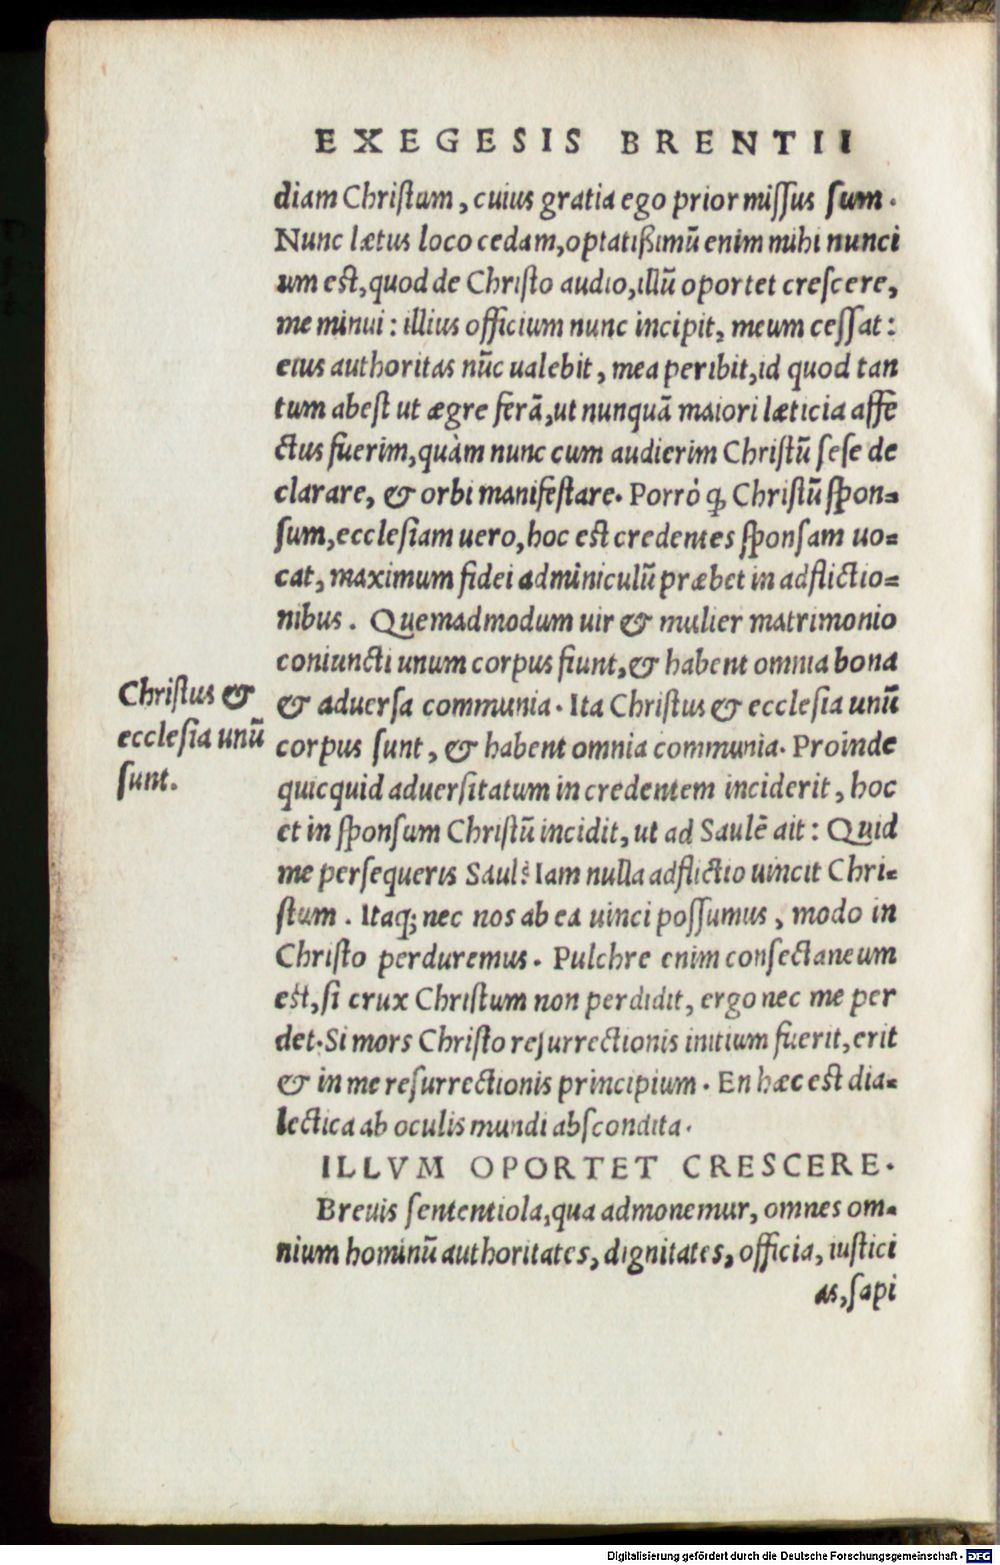 EXEGESIS BRENTII
diam Chriſtum, cuius gratia ego prior miſſus ſum.
Nunc lætus loco cedam, optatißimū enim mihi nunci
um eſt, quod de Chriſto audio, illū oportet creſcere,
me minui: illius officium nunc incipit, meum ceſſat:
eius authoritas nūc ualebit, mea peribit, id quod tan
tum abeſt ut ægre ferā, ut nunquā maiori læticia affe
ctus fuerim, quàm nunc cum audierim Chriſtū ſeſe de
clarare, & orbi manifeſtare. Porrò ꝙ Chriſtū ſpon=
ſum, eccleſiam uero, hoc eſt credentes ſponſam uo=
cat, maximum fidei adminiculū præbet in adflictio=
nibus. Quemadmodum uir & mulier matrimonio
coniuncti unum corpus fiunt, & habent omnia bona
& aduerſa communia. Ita Chriſtus & eccleſia unū
Chriſtus &
eccleſia unū
ſunt.
corpus ſunt, & habent omnia communia. Proinde
quicquid aduerſitatum in credentem inciderit, hoc
et in ſponſum Chriſtū incidit, ut ad Saulē ait: Quid
me perſequeris Saul? Iam nulla adflictio uincit Chri=
ſtum. Itaq; nec nos ab ea uinci poſſumus, modo in
Chriſto perduremus. Pulchre enim conſectaneum
eſt, ſi crux Chriſtum non perdidit, ergo nec me per
det. Si mors Chriſto reſurrectionis initium fuerit, erit
& in me reſurrectionis principium. En hæc eſt dia=
lectica ab oculis mundi abſcondita.
ILLVM OPORTET CRESCERE.
Breuis ſententiola, qua admonemur, omnes om=
nium hominū authoritates, dignitates, officia, iuſtici
as, ſapi
Digitalisierung gefördert durch die Deutsche Forschungsgemeinschaft - DFG